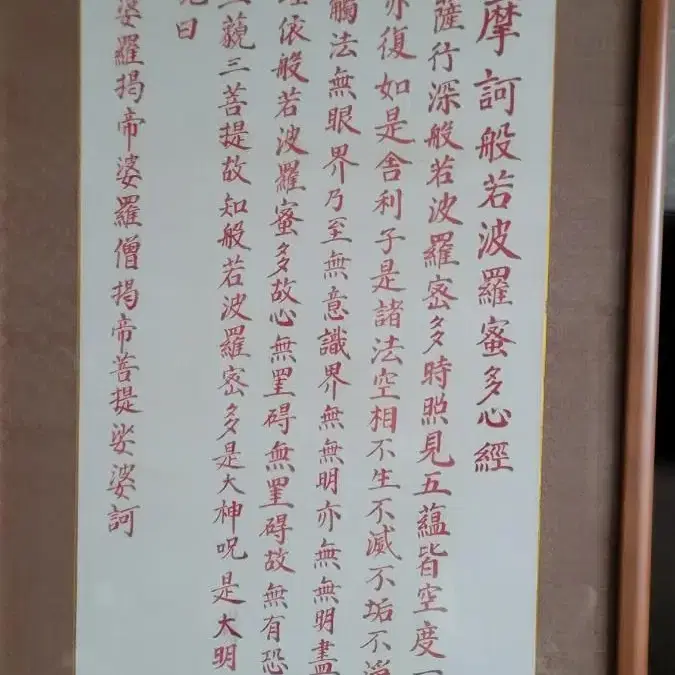 摩訶般若波羅蜜多心經
薩行深般若波羅密多時照見五蘊皆空度
亦復如是舍利子是諸法空相不生不滅不垢不淨
觸法無眼界乃至無意識界無無明亦無無明盡
依般若波羅蜜多故心無罣碍無罣碍故無有恐
三藐三菩提故知般若波羅密多是大神呪是大明
曰
婆羅揭帝婆羅僧揭帝菩提娑婆訶